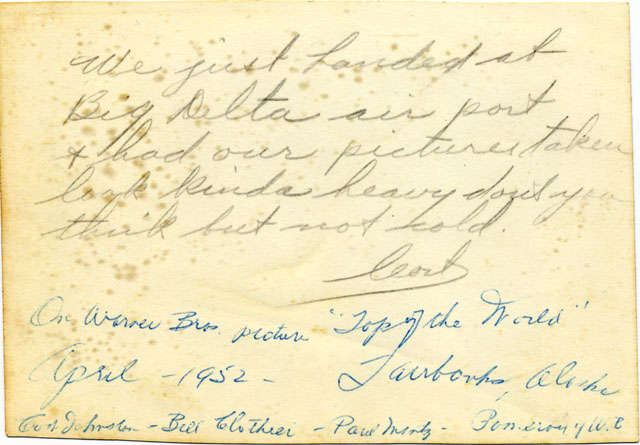 We just landed at
Big Delta air port
+ had our pictures taken
look kinda heavy dont you
think but not cold.
Cort
On Warner Bros. picture "Top of the World"
April - 1952 - Fairbanks, Alaska
Cort Johnston - Bill Clothier - Paul Mantz - Pomeroy of W.B